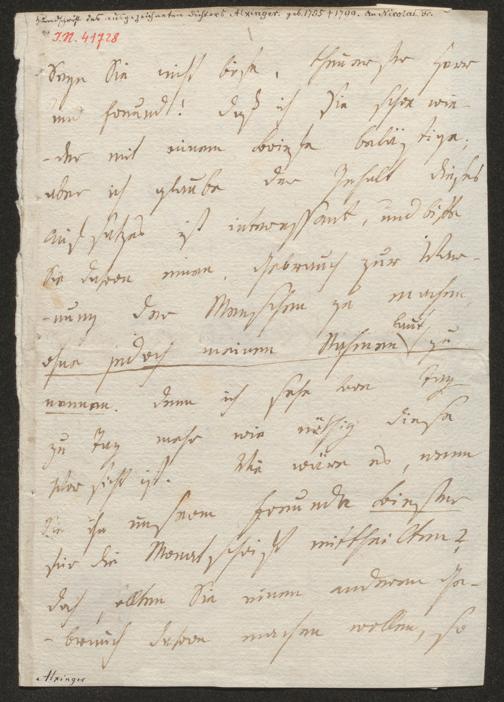 Handschrift des ausgezeichneten Dichters Alxinger. geb. 1755 † 1799. An Nicolai &c.
I.N. 41728
Seyn Sie nicht böse, theuerster Herr
und Freund! daß ich Sie schon wie-
-der mit einem Briefe belästige;
aber ich glaube der Inhalt dieses
Aufsatzes ist interessant, und bitte
Sie davon einen Gebrauch zur War-
-nung der Menschen zu machen,
ohne jedoch meinen Nahmen laut zu
nennen. Denn ich sehe von Tag
zu Tag mehr wie nöthig diese
Vorsicht ist. Wie wäre es, wenn
Sie ihn unserem Freunde Biester
für die Monatschrift mittheilten?
doch, sollten Sie einen anderen Ge-
-brauch davon machen wollen, so
Alxinger